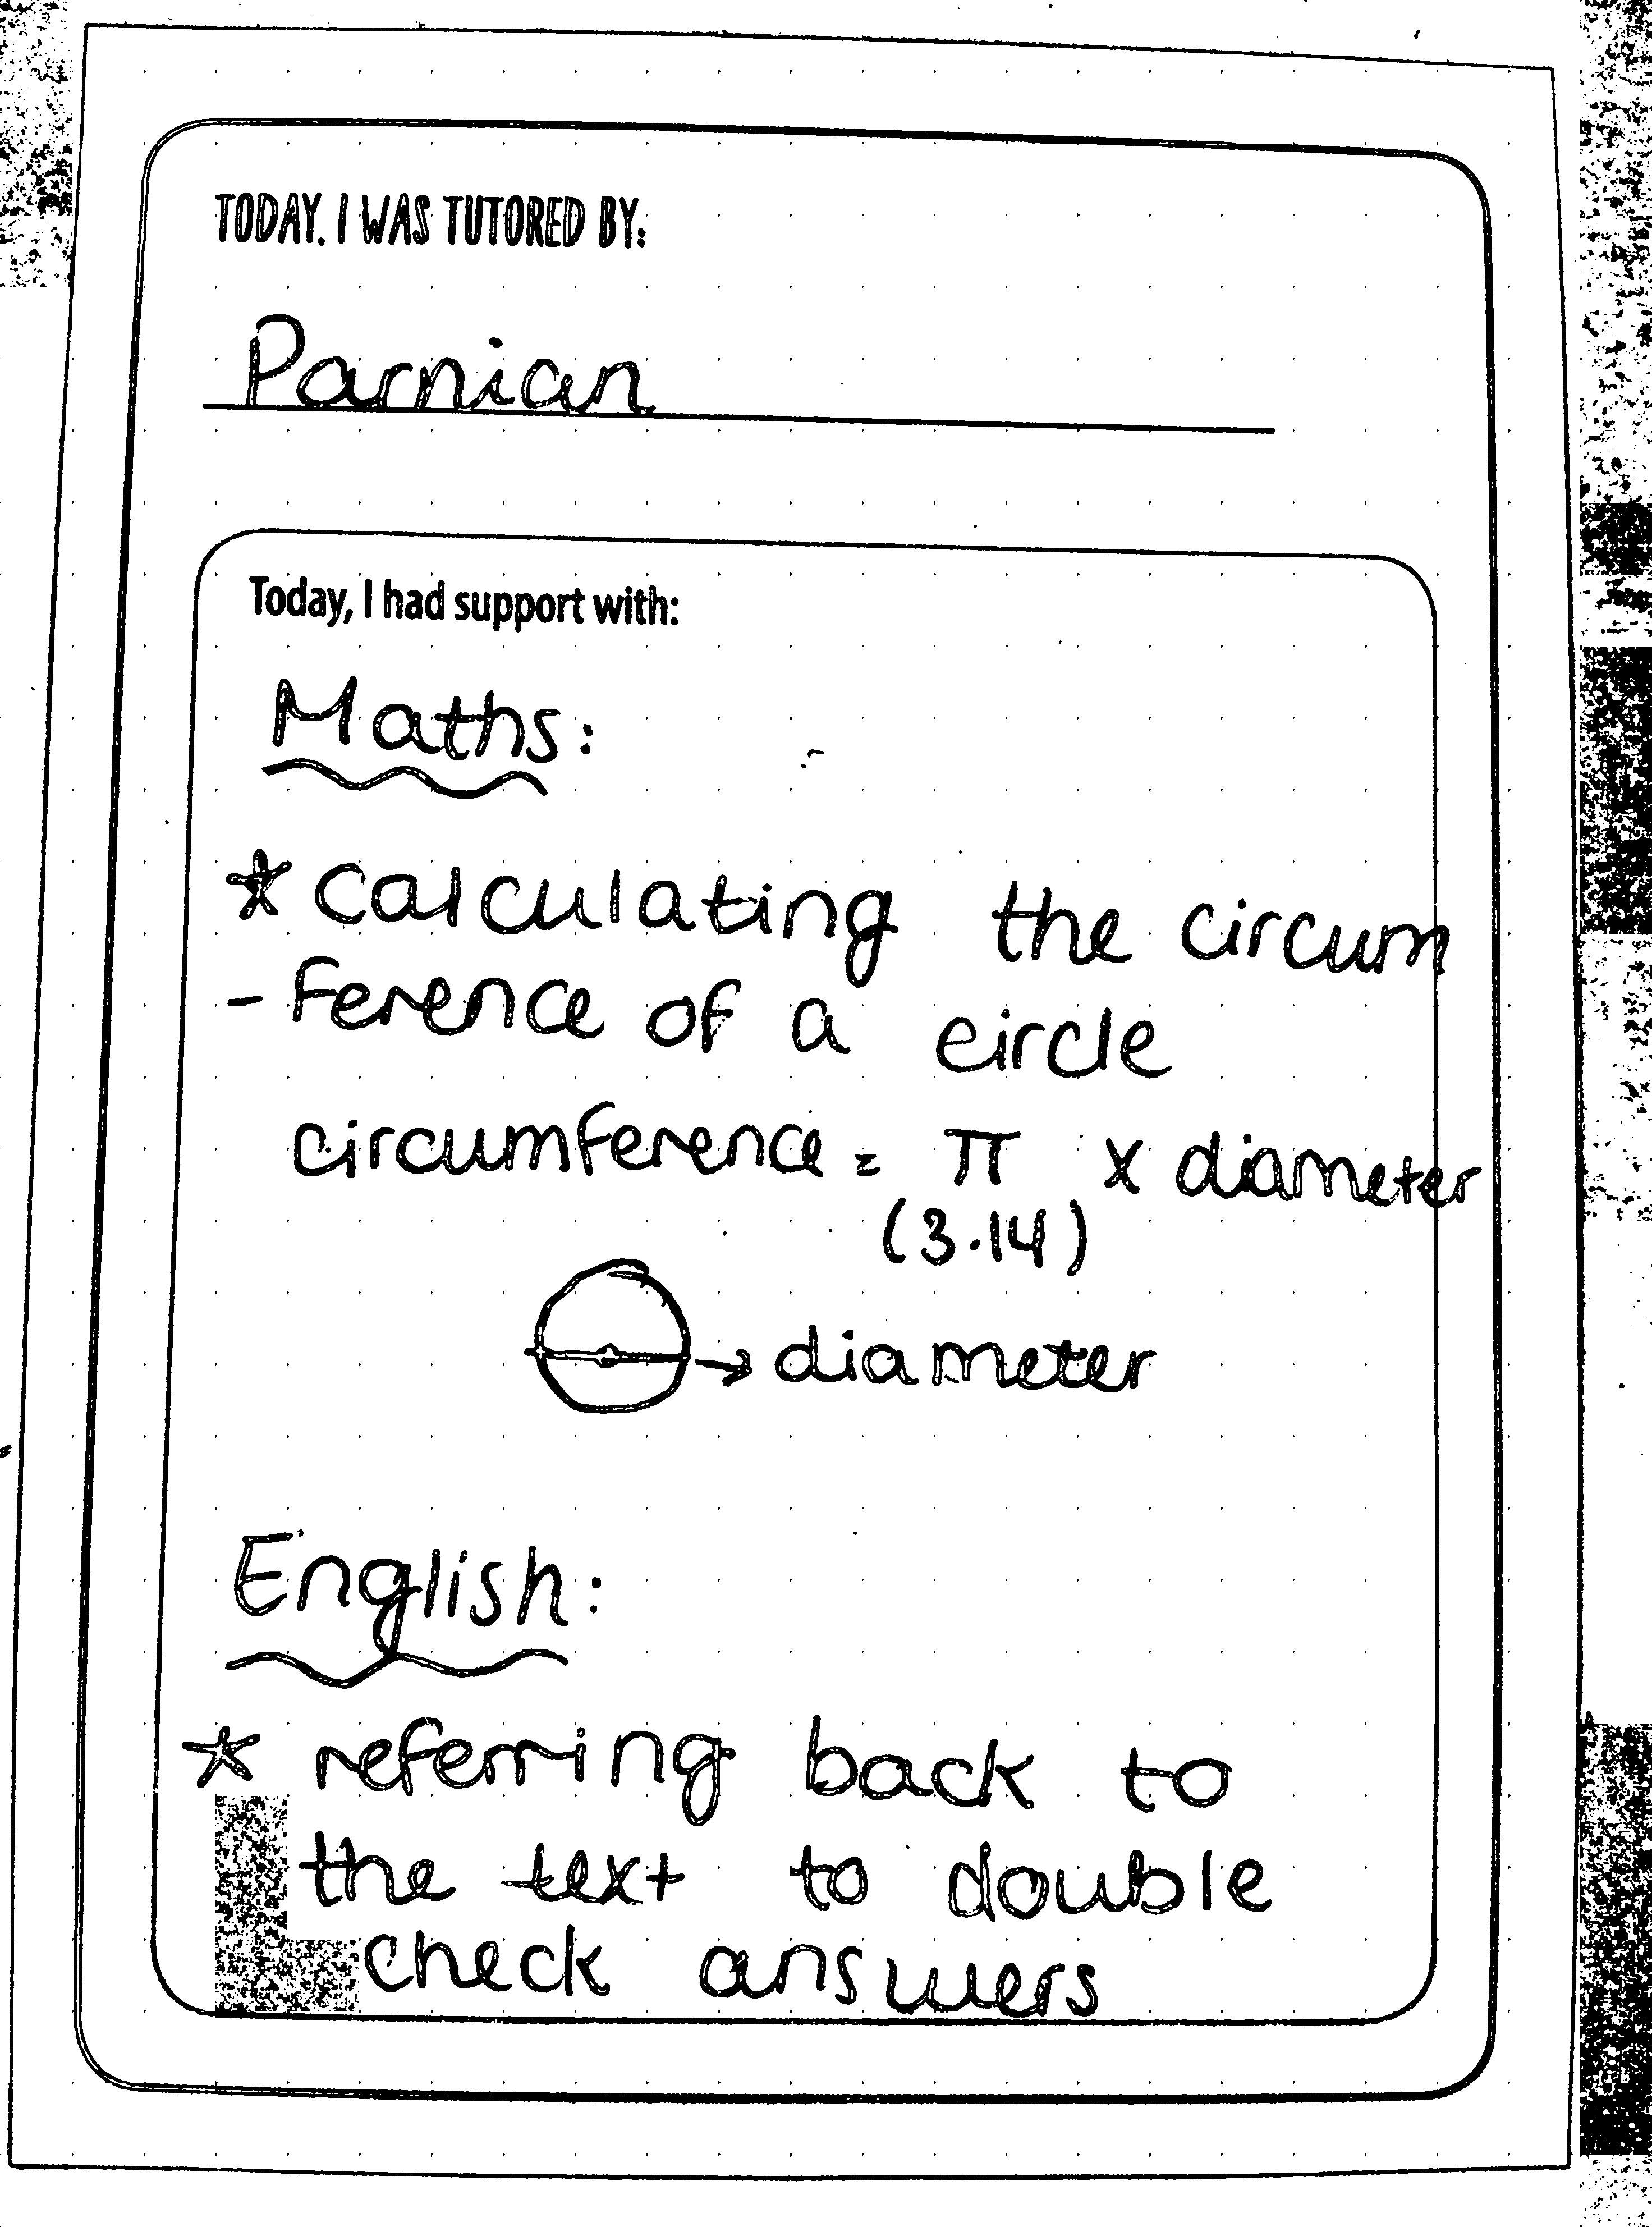 TODAY, I WAS TUTORED BY:
Parnian
Today, I had support with:
Maths:
* calculating the circum
- ference of a circle
circumference = π x diameter
(3.14)
→ diameter
English:
* referring back to
the text to double
check answers